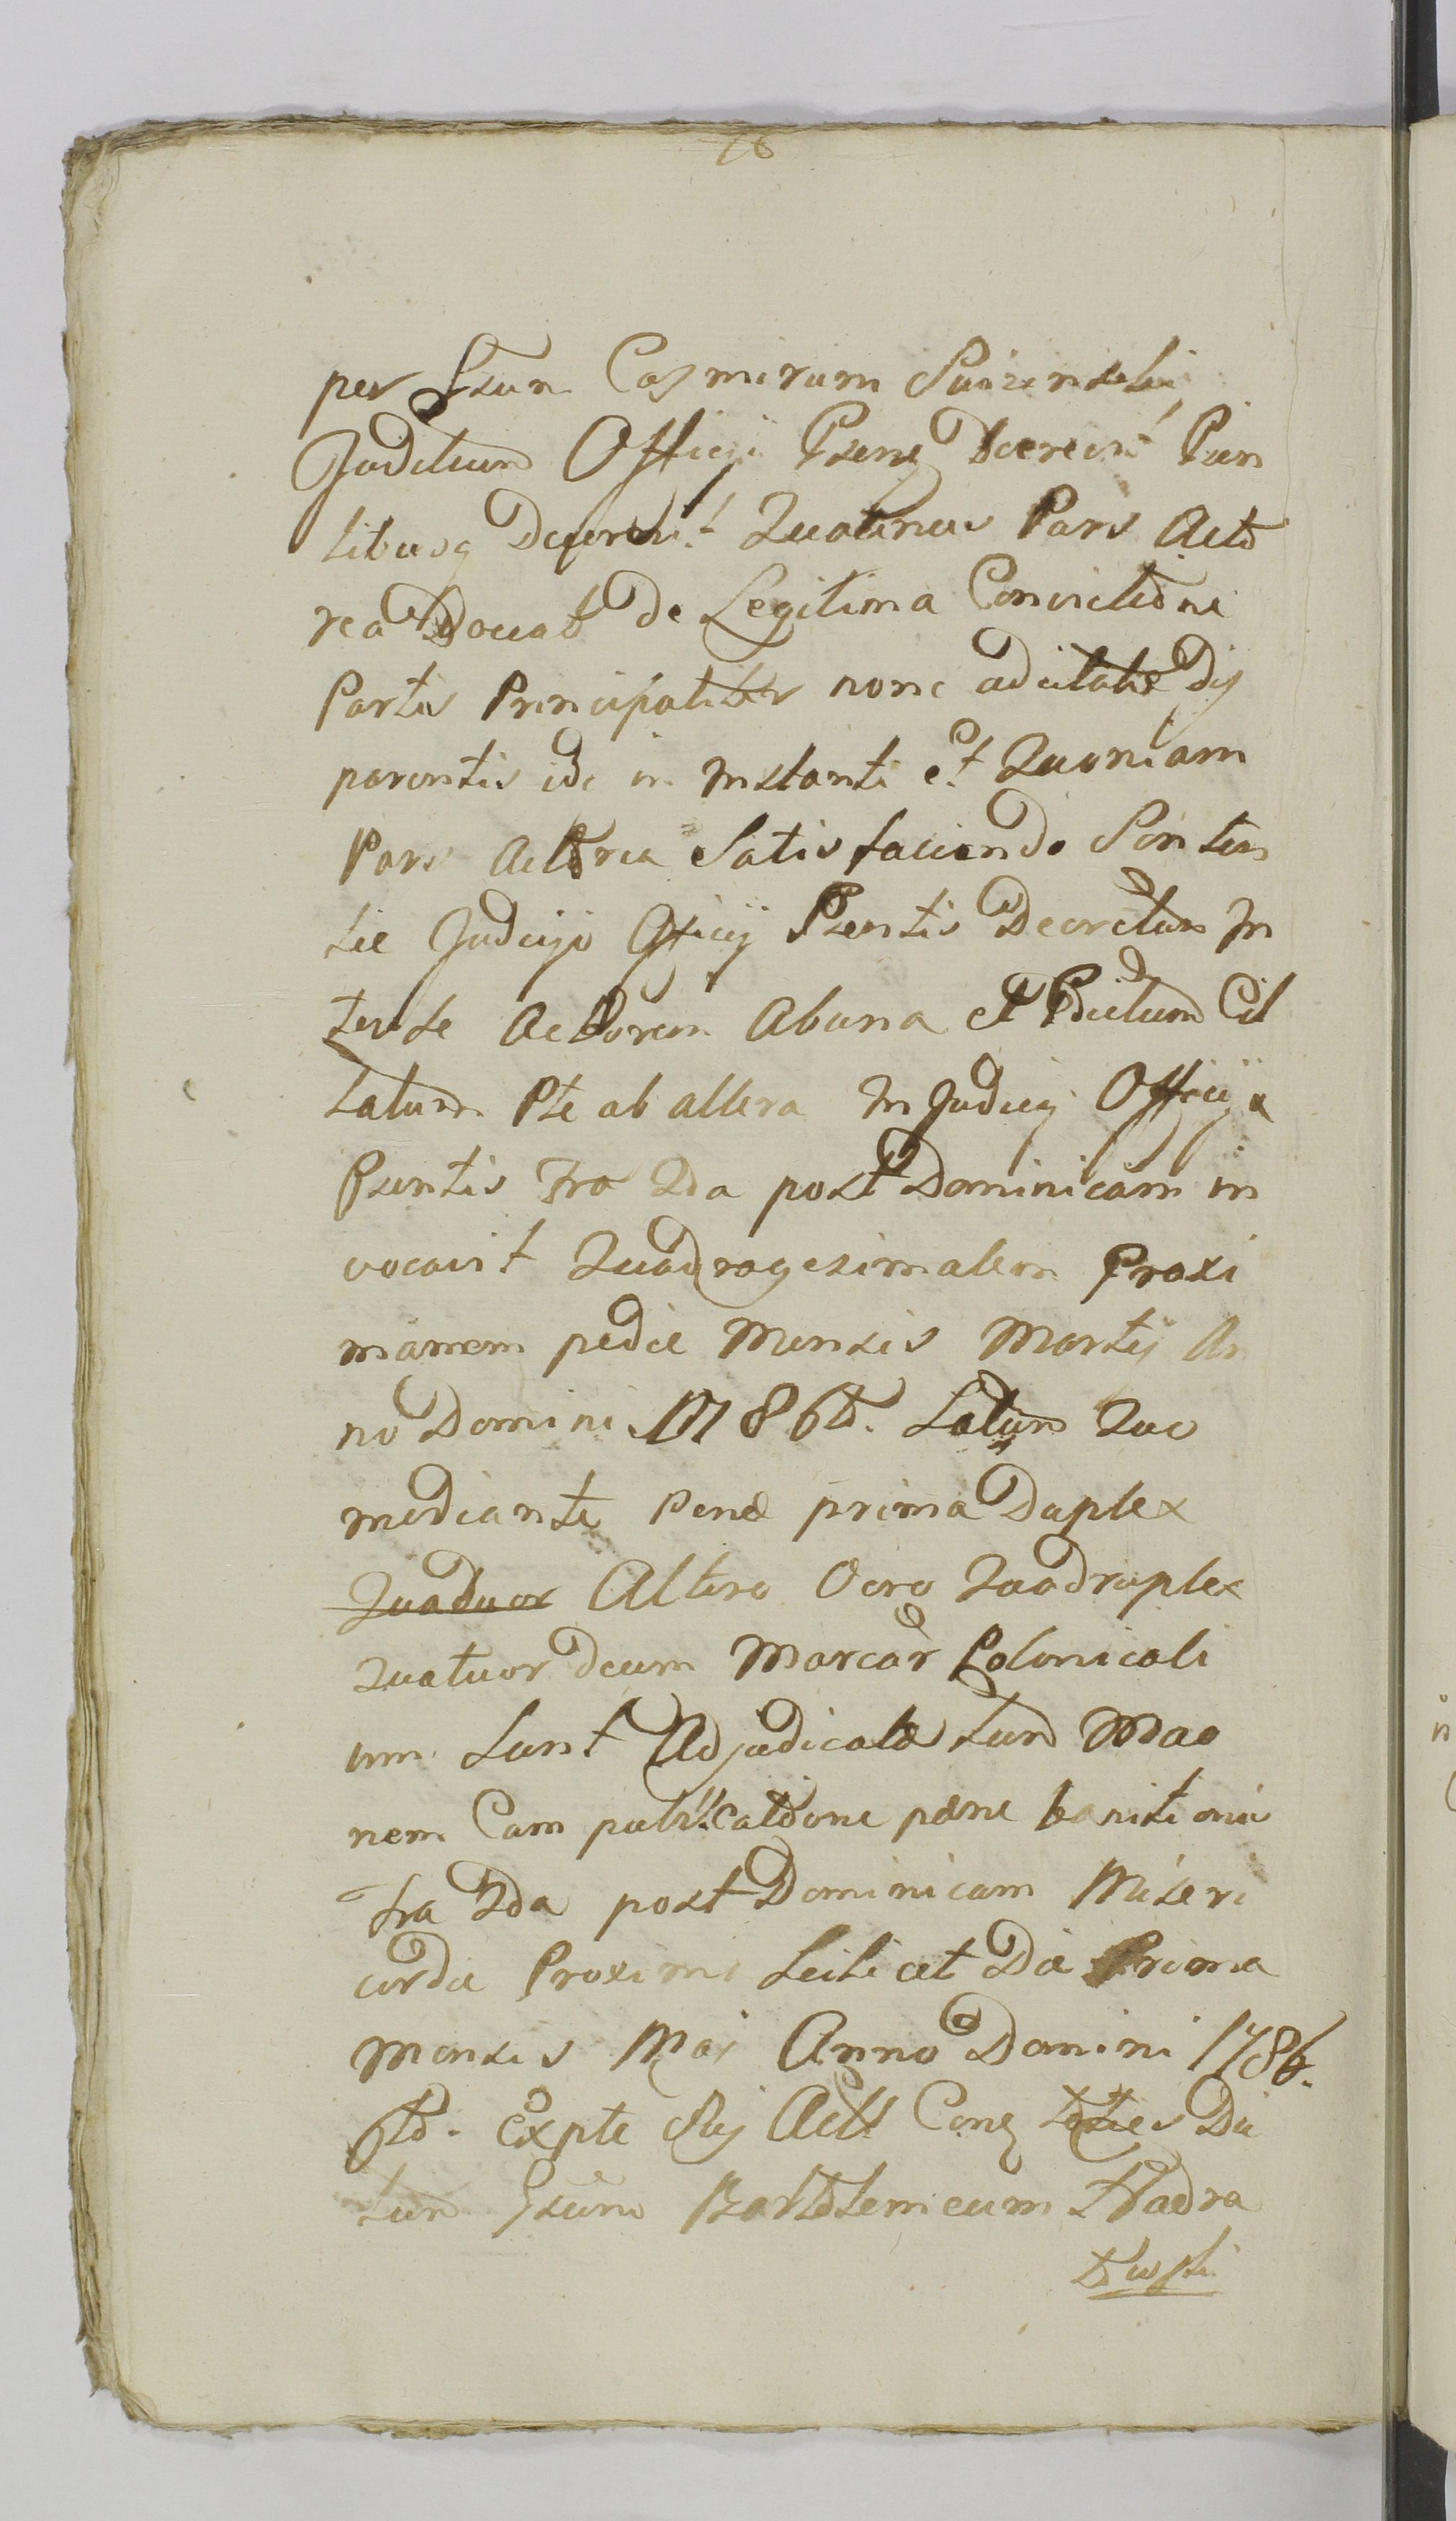 76
per Gsum Casmirum
Juditium Officij Psens Decrevit Par
tibusq Decrevit Quatinus Pars Acto
rea Doceat De Legitima Convictione
Partis Principaliter nonc adcitatæ
parentis ide in Instanti et Quoniam
Pars Actorea Satis faciendo Senten
tie Judicyi Officij Psentis Decretum In
ter se Actorem Abuna et Pdictum Cit
tatum Pte ab altera In Judicij Officij
Psentis Fra 2da post Dominicam in
vocavit Quadragesimalem Proxi
mamem pedie Mensis Martij An
no Domini 1786to. Latum Quo
mediante Pene prima Duplex
Quaduor Altera Vero Quadruplex
Quatuor decum Marcar Polonicali
um Sunt Adjudicatæ tum Mao
nem Cum publicatione pæne banitionis
Fra 2da post Dominicam Miseri
cordiæ Proximi Scilicet Die Prima
Mensis Maj Anno Domini 1786.
6to. Expte Rij Act
tum Gsum Bartolemeum Nadra
towski